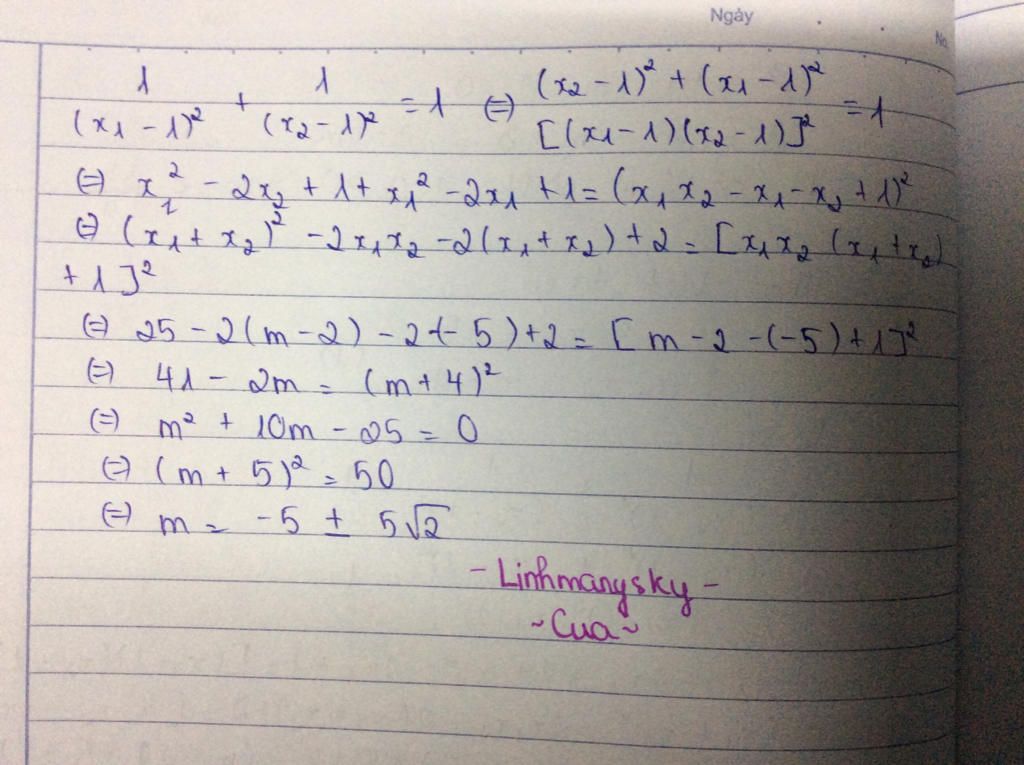 Ngày
No.
1/(x₁ - 1)² + 1/(x₂ - 1)² = 1 (=) ((x₂ - 1)² + (x₁ - 1)²)/[(x₁ - 1)(x₂ - 1)]² = 1
(=) x₂² - 2x₂ + 1 + x₁² - 2x₁ + 1 = (x₁x₂ - x₁ - x₂ + 1)²
(=) (x₁ + x₂)² - 2x₁x₂ - 2(x₁ + x₂) + 2 = [x₁x₂ (x₁ + x₂)
+ 1]²
(=) 25 - 2(m - 2) - 2(-5) + 2 = [m - 2 - (-5) + 1]²
(=) 41 - 2m = (m + 4)²
(=) m² + 10m - 25 = 0
(=) (m + 5)² = 50
(=) m = -5 ± 5√2
- Linhmangsky -
~Cua~